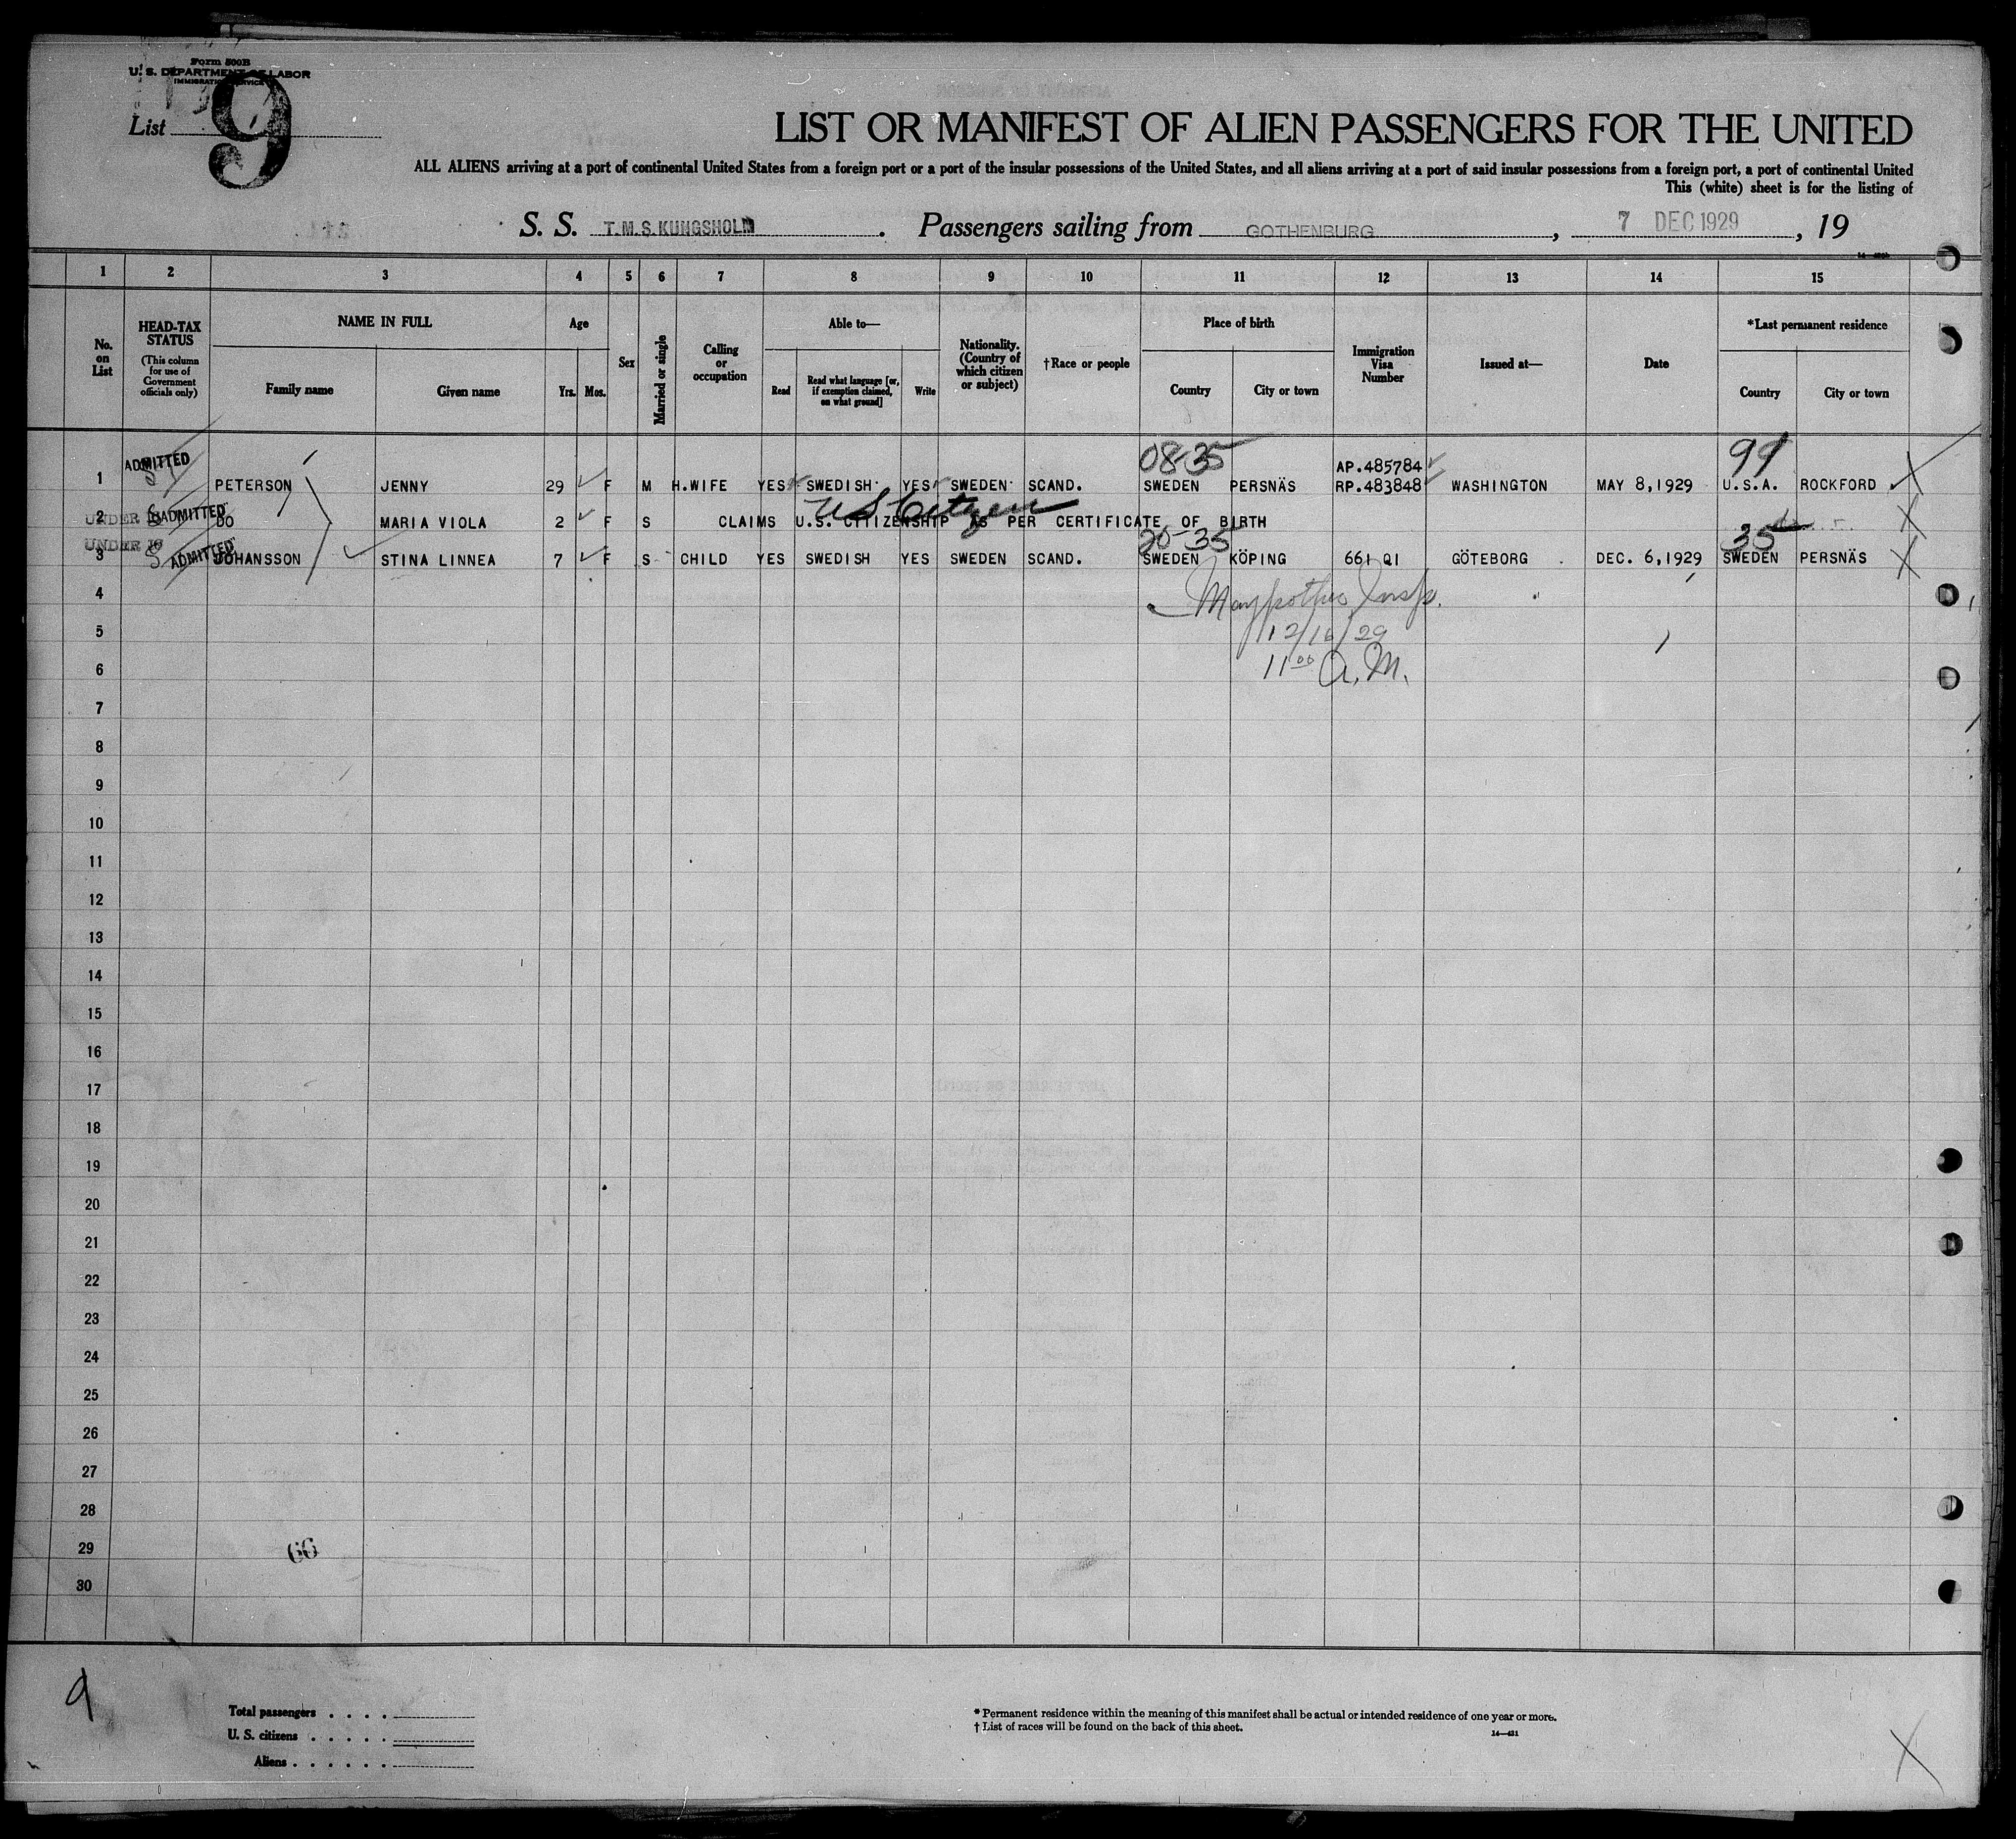 Form 500B
U. S. DEPARTMENT OF LABOR
IMMIGRATION SERVICE
List 9
LIST OR MANIFEST OF ALIEN PASSENGERS FOR THE UNITED
ALL ALIENS arriving at a port of continental United States from a foreign port or a port of the insular possessions of the United States, and all aliens arriving at a port of said insular possessions from a foreign port, a port of continental United
This (white) sheet is for the listing of
S. S. T.M.S.KUNGSHOLM . Passengers sailing from GOTHENBURG , 7 DEC 1929 , 19
1 2 3 4 5 6 7 8 9 10 11 12 13 14 15
No. on List
HEAD-TAX STATUS
(This column for use of Government officials only)
NAME IN FULL
Family name Given name
Age
Yrs. Mos.
Sex
Married or single
Calling or occupation
Able to—
Read
Read what language [or, if exemption claimed, on what ground]
Write
Nationality. (Country of which citizen or subject)
†Race or people
Place of birth
Country City or town
Immigration Visa Number
Issued at—
Date
*Last permanent residence
Country City or town
08-35 99
AP.485784
1 ADMITTED PETERSON JENNY 29 F M H.WIFE YES SWEDISH YES SWEDEN SCAND. SWEDEN PERSNÄS RP.483848 WASHINGTON MAY 8,1929 U.S.A. ROCKFORD
US Citizen
2 UNDER 16 ADMITTED DO MARIA VIOLA 2 F S CLAIMS U.S. CITIZENSHIP AS PER CERTIFICATE OF BIRTH
20-35 35
3 UNDER 16 ADMITTED JOHANSSON STINA LINNEA 7 F S CHILD YES SWEDISH YES SWEDEN SCAND. SWEDEN KÖPING 661 QI GÖTEBORG DEC. 6,1929 SWEDEN PERSNÄS
4 Insp.
5 12/16/29
6 11⁰⁰ A.M.
7
8
9
10
11
12
13
14
15
16
17
18
19
20
21
22
23
24
25
26
27
28
29 66
30
9
Total passengers . . . .
U. S. citizens . . . . .
Aliens . . . . . .
* Permanent residence within the meaning of this manifest shall be actual or intended residence of one year or more.
† List of races will be found on the back of this sheet.
14—431